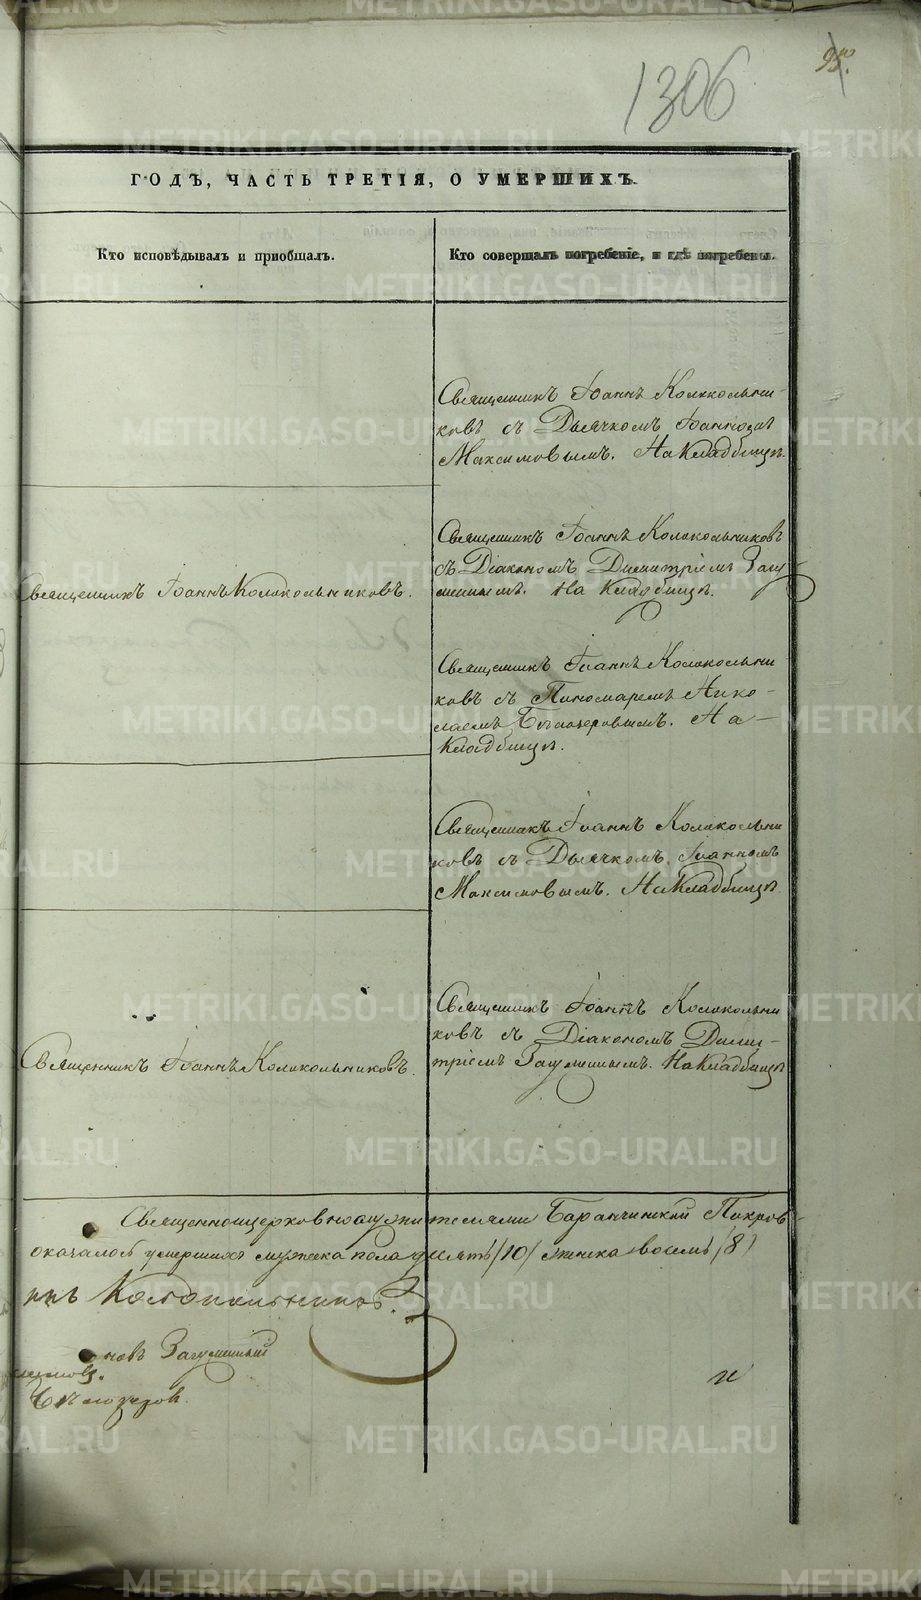 1306
95.
ГОДЪ, ЧАСТЬ ТРЕТІЯ, О УМЕРШИХЪ.
Кто исповѣдывалъ и пріобщалъ.
Кто совершалъ погребеніе, и гдѣ погребены.
Священникъ Іоаннъ Колокольни-
ковъ съ Дьячкомъ Іоанномъ
Максимовымъ. На Кладбищѣ.
Священникъ Іоаннъ Колокольниковъ.
Священникъ Іоаннъ Колокольниковъ
съ Діакономъ Димитріемъ Загу
меннымъ. На Кладбищѣ.
Священникъ Іоаннъ Колокольни-
ковъ съ Пономаремъ Нико-
лаемъ Бѣлозеровымъ. На-
Кладбищѣ.
Священникъ Іоаннъ Колокольни
ковъ съ Дьячкомъ Іоанномъ
Максимовымъ. На Кладбищѣ.
Священникъ Іоаннъ Колокольниковъ.
Священникъ Іоаннъ Колокольни
ковъ съ Діакономъ Дими-
тріемъ Загуменнымъ. На Кладбищѣ
Священноцерковнослужителями Баранчинской Покров-
оказалось умершихъ мужеска пола десять /10/ женска восемь /8/
ннъ Колокольниковъ.
новъ Загуменный
Бѣлозеровъ.
METRIKI.GASO-URAL.RU